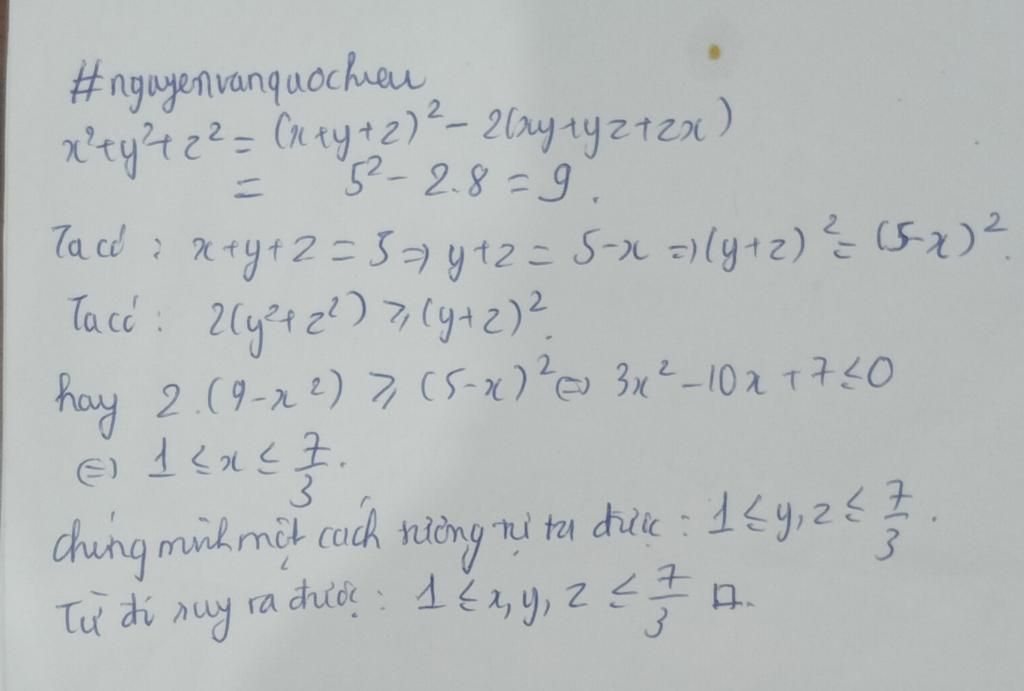 #nguyenvanquochieu
x²+y²+z² = (x+y+z)² - 2(xy+yz+zx)
= 5² - 2.8 = 9.
Ta có : x+y+z = 5 ⇒ y+z = 5-x ⇒ (y+z)² = (5-x)².
Ta có : 2(y²+z²) ≥ (y+z)².
hay 2.(9-x²) ≥ (5-x)² ⇔ 3x²-10x+7≤0
⇔ 1 ≤ x ≤ 7/3.
chứng minh một cách tương tự ta được : 1 ≤ y, z ≤ 7/3.
Từ đó suy ra được : 1 ≤ x, y, z ≤ 7/3 □.